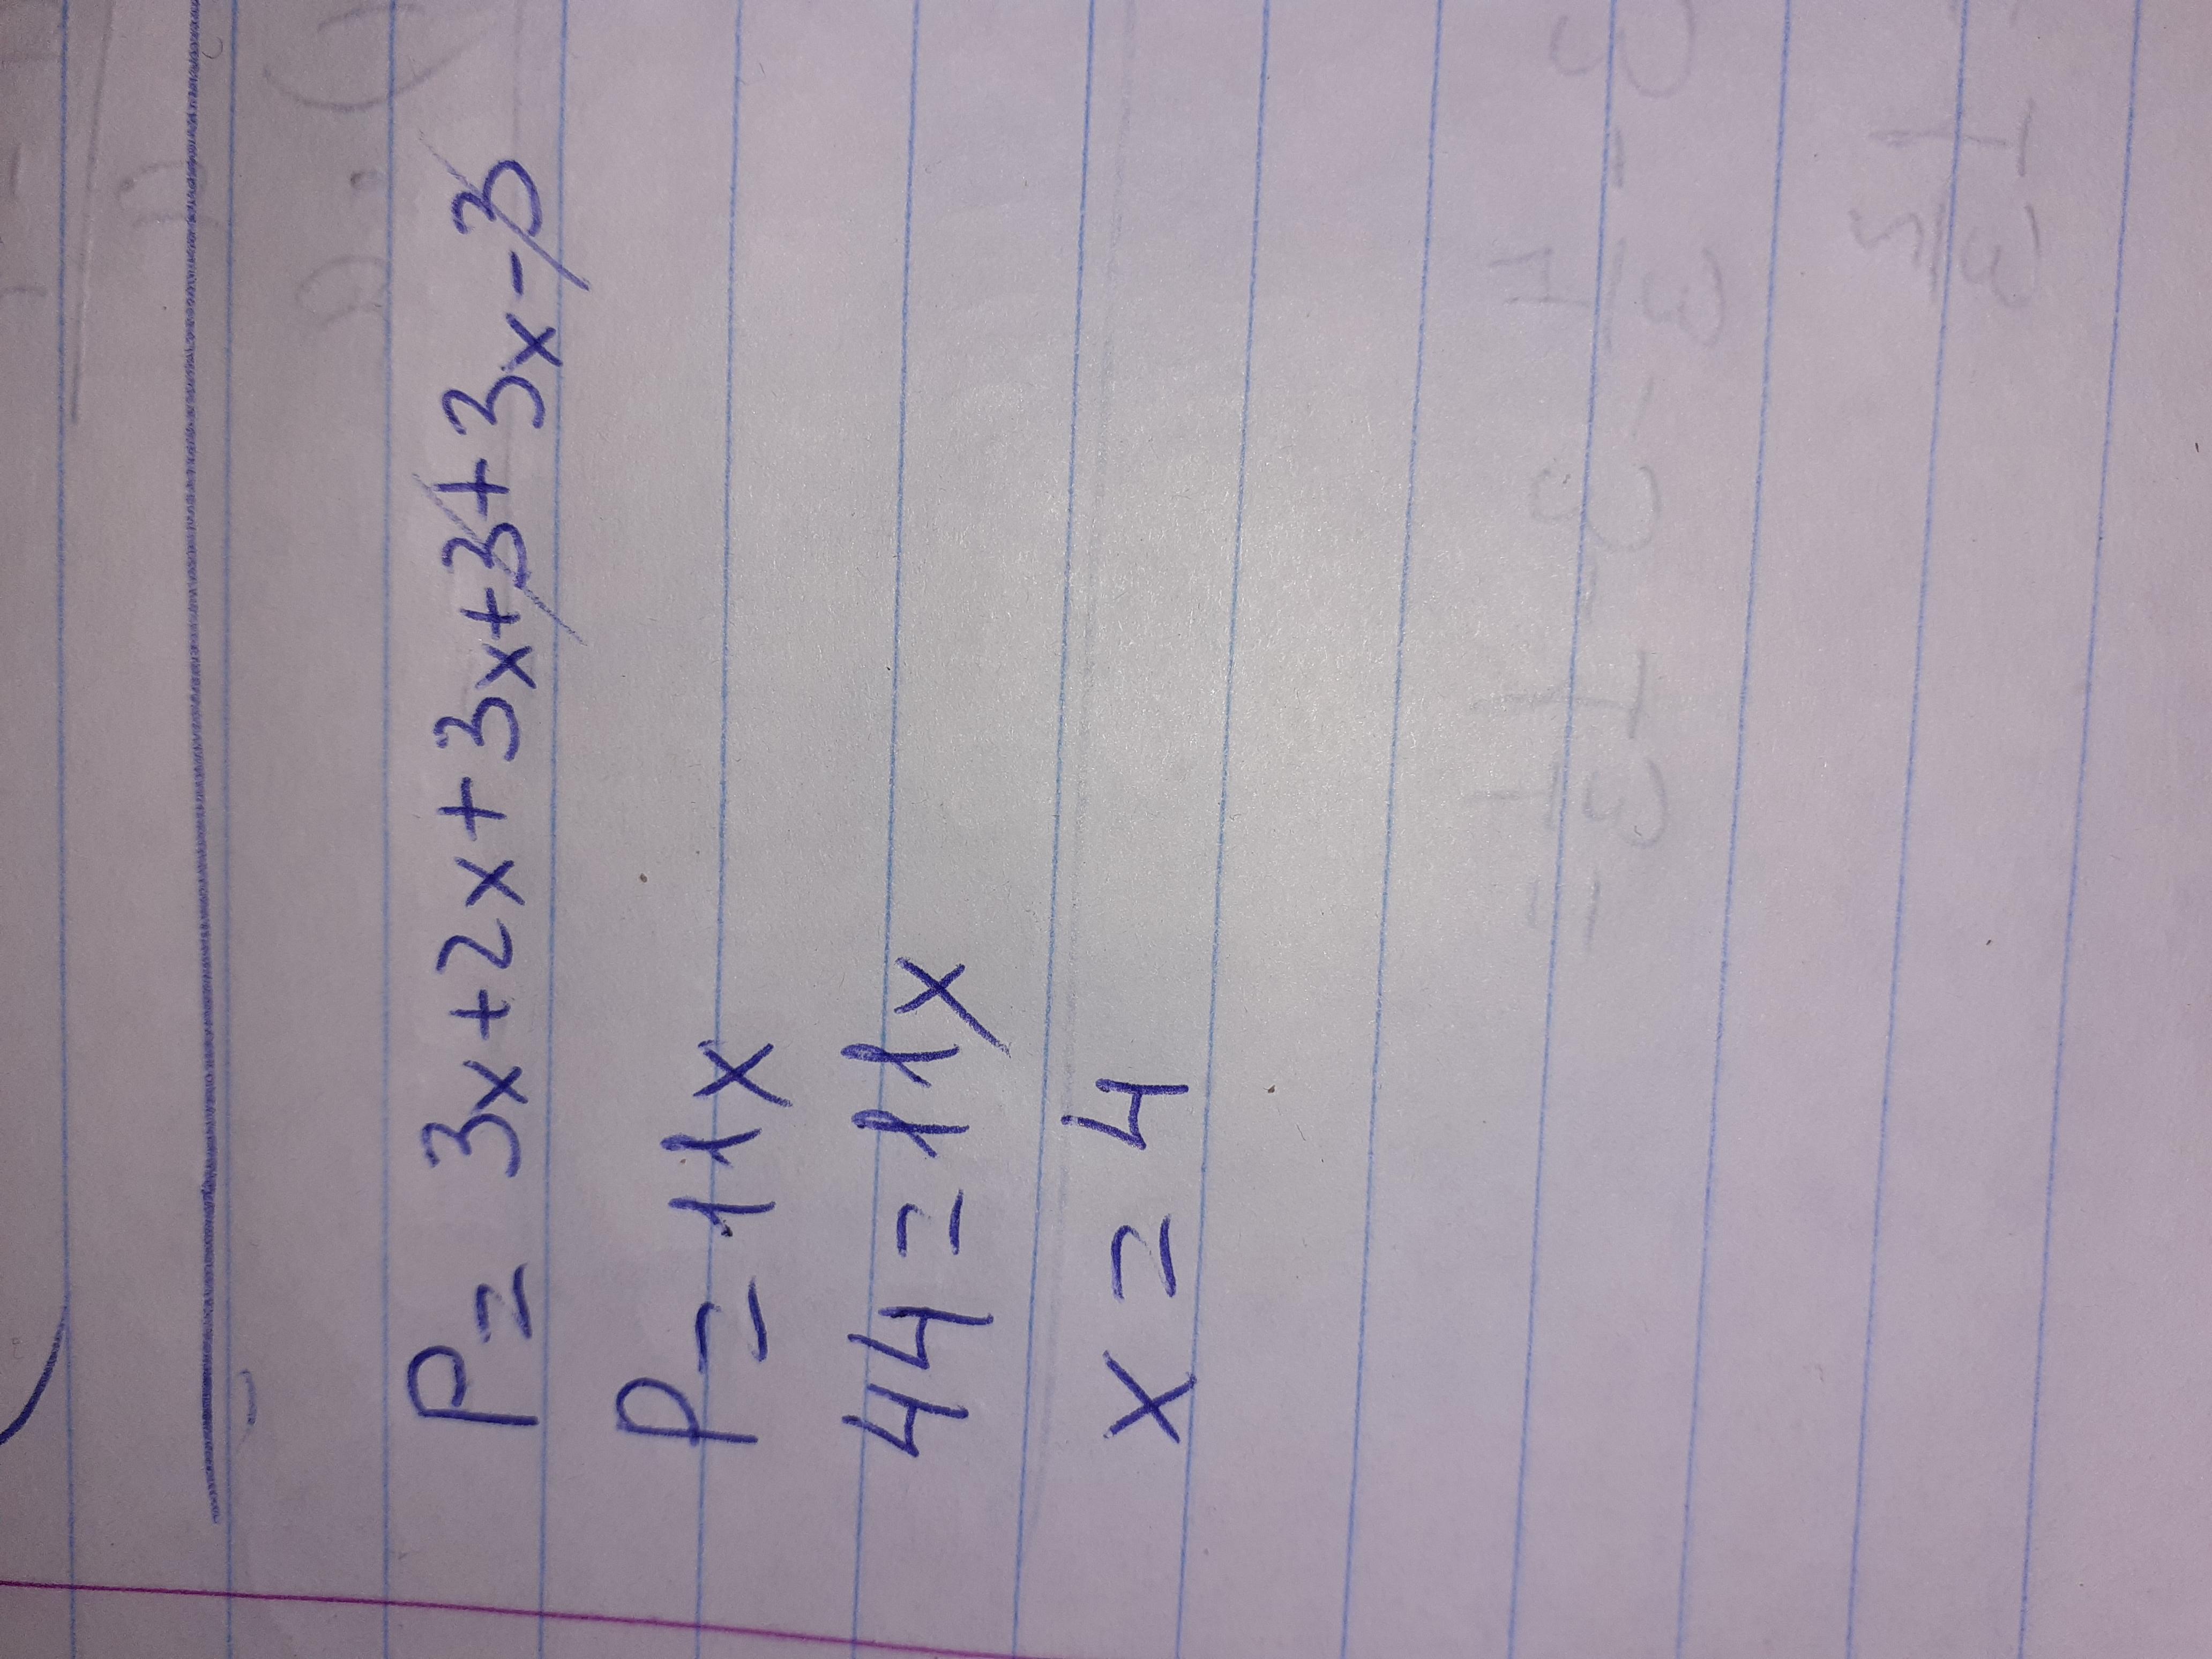 P = 3x+2x+3x+3+3x-3
P = 11x
44 = 11x
x = 4